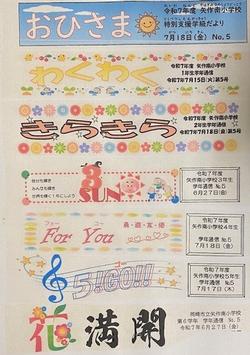 おひさま
令和7年度 矢作南小学校
特別支援学級だより
7月18日(金) No.5
わくわく
令和7年度 矢作南小学校
1年生学年通信
令和7年7月15日(火)第5号
きらきら
令和7年度 矢作南小学校
2年生学年通信
令和7年7月18日(金)第5号
自分も輝き
みんなも輝き
世界も輝く 冬にしよう
3
SUN
令和7年度
矢作南小学校3年生
学年通信 No.5
6月27日(金)
フォー ユー
For You
勇・遊・友・優
令和7年度
矢作南小学校4年生
学年通信 No.5
7月18日(金)
5!GO!!
令和7年度
矢作南小学校5年生
学年通信 No.5
7月17日(木)
花満開
岡崎市立矢作南小学校
第6学年 学年通信 No.5
令和7年6月27日(金)